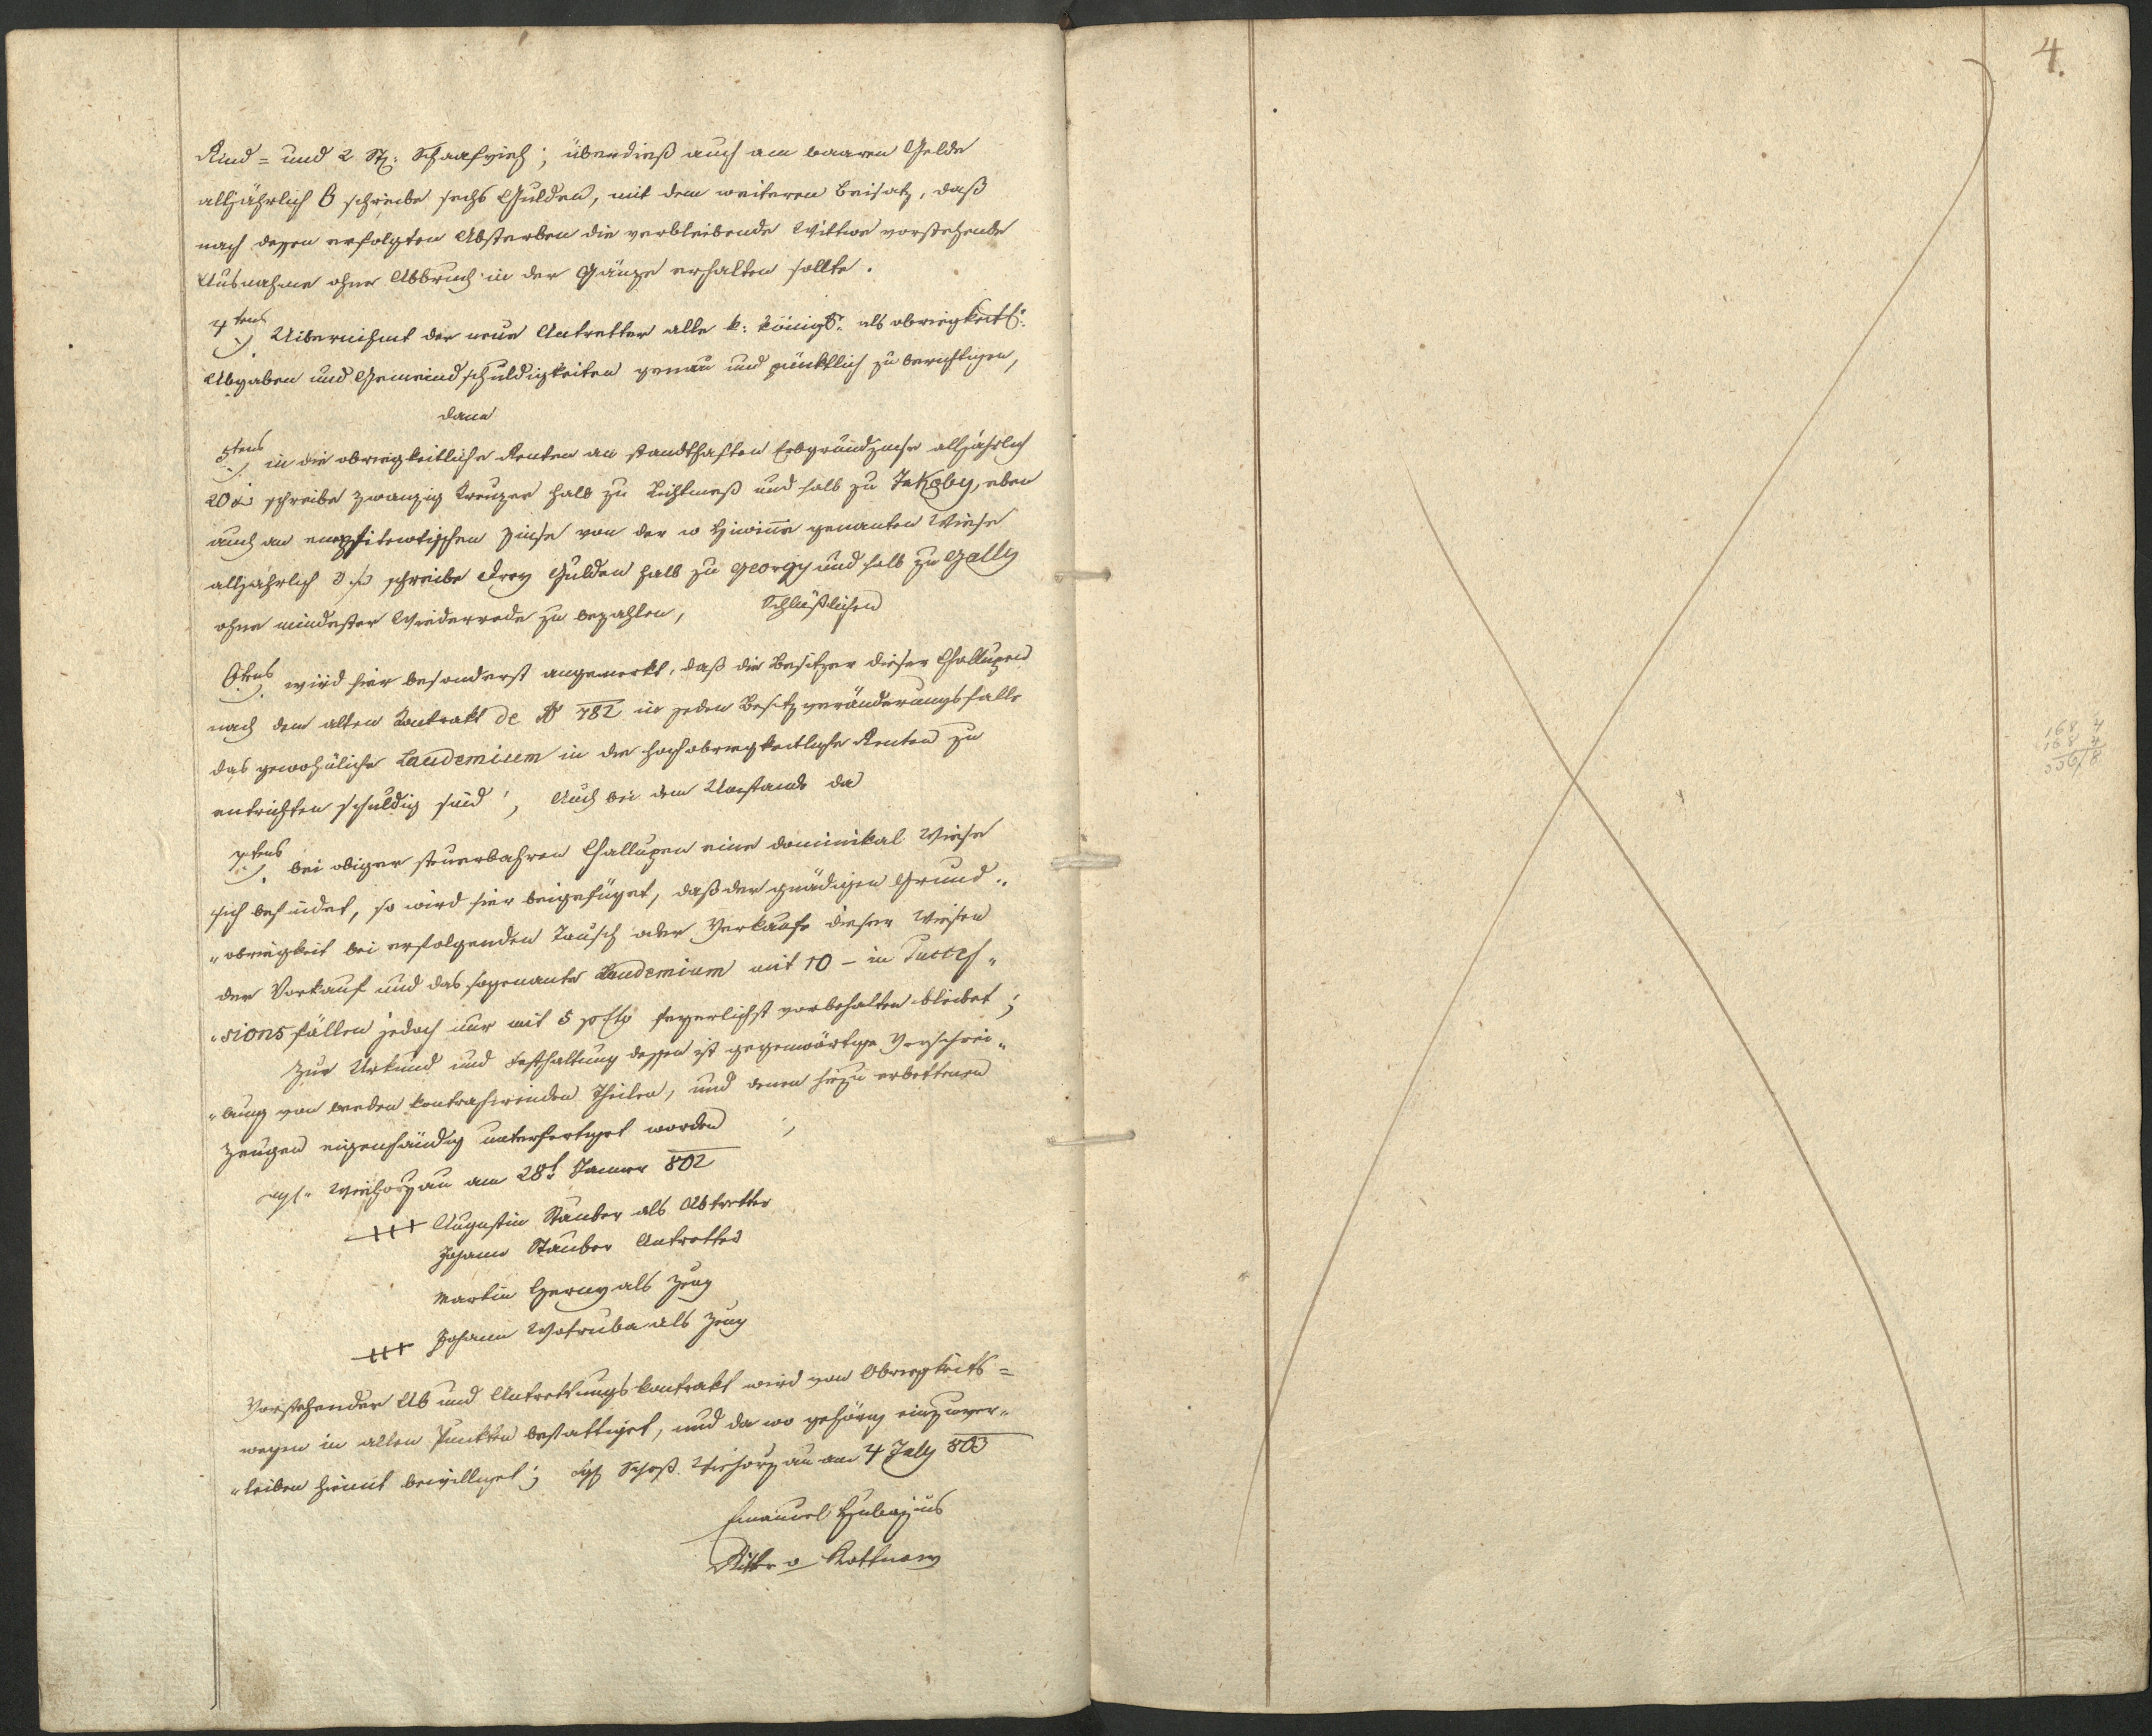 Rind= und 2 St: Schaafvieh; überdieß auch am baaren Gelde
alljährlich 6 schreibe sechs Gulden, mit dem weiteren Beisatz, daß
nach dessen erfolgten Absterben die verbleibende Wittwe vorstehende
Ausnahme ohne Abbruch in der Gänze erhalten sollte.
4tens Uibernihmt der neue Antretter alle k: königl: als obrigkeitl:
Abgaben und Gemeindschuldigkeiten genau und pünktlich zu berichtigen,
dann
5tens in die obrigkeitliche Renten an standthaften Erbgrundzinse alljährlich
20 x schreibe zwanzig Kreuzer halb zu Lichtmeß und halb zu Jakoby, eben
auch an emphiteutischen Zinse von der genanten Wiese
alljährlich 3 f schreibe drey Gulden halb zu Georgy und halb zu Gally
ohne mindester Wiederrede zu bezahlen, Schlüßlichen
6tens wird hier besonderst angemerkt, daß die Besitzer dieser Challupen
nach dem alten Kontrakt de Ao 782 in jeden Besitzveränderungsfalle
das gewohnliche Laudemium in die hochobrigkeitliche Renten zu
entrichten schuldig sind, Auch bei dem Umstande da
7tens bei obiger steuerbahren Challupen eine dominikal Wiese
sich befindet, so wird hier beigefüget, daß der gnädigen Grund„
„obrigkeit bei erfolgenden Tausch oder Verkaufe dieser Wiesen
der Vorkauf und das sogenante Laudemium mit 10 - in Succes„
„sionsfällen jedoch nur mit 5 pCto feyerlichst vorbehalten bleibet;
Zur Urkund und Festhaltung dessen ist gegenwärtige Verschrei„
„bung von beeden kontrahirenden Theilen, und denen hiezu erbettenen
Zeugen eigenhändig unterfertiget worden
Wihorzau am 28t Jänner 802
+++ Augustin Stauber als Abtretter
Johann Stauber Antretter
Martin Czerny als Zeug
+++ Johann Wotruba als Zeug
Vorstehender Ab und Antrettungskontrakt wird von Obrigkeits=
wegen in allen Punkten bestattiget, und da wo gehörig einzuver„
„leiben hiemit bewilliget; Schloß Wihorzau am 4 July 803
Emanuel
Ritter v
4.
168 4
168 4
336 8